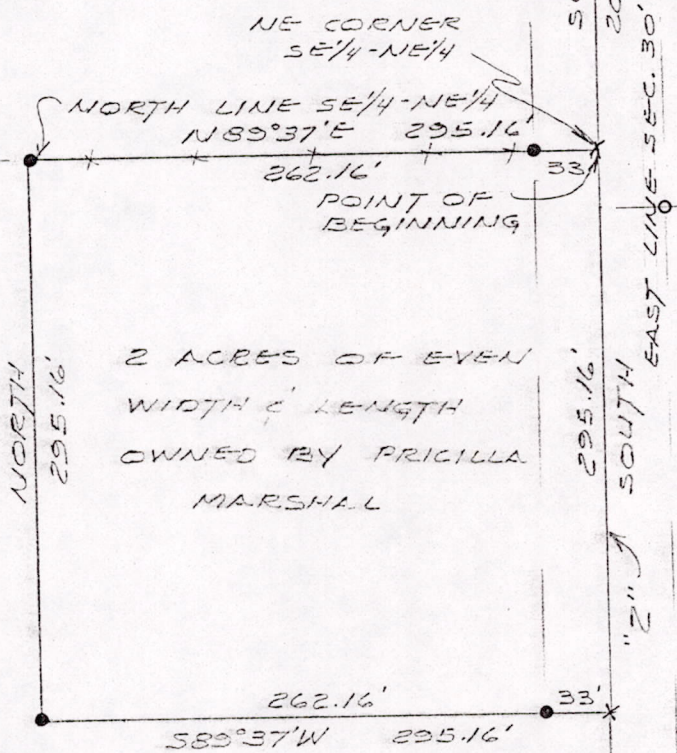 NE CORNER
SE¼-NE¼
NORTH LINE SE¼-NE¼
N89°37'E 295.16'
262.16'
33
POINT OF
BEGINNING
EAST LINE SEC. 30'
2 ACRES OF EVEN
WIDTH & LENGTH
OWNED BY PRICILLA
MARSHAL
NORTH
295.16'
295.16'
SOUTH
"2"
262.16'
33'
S89°37'W 295.16'